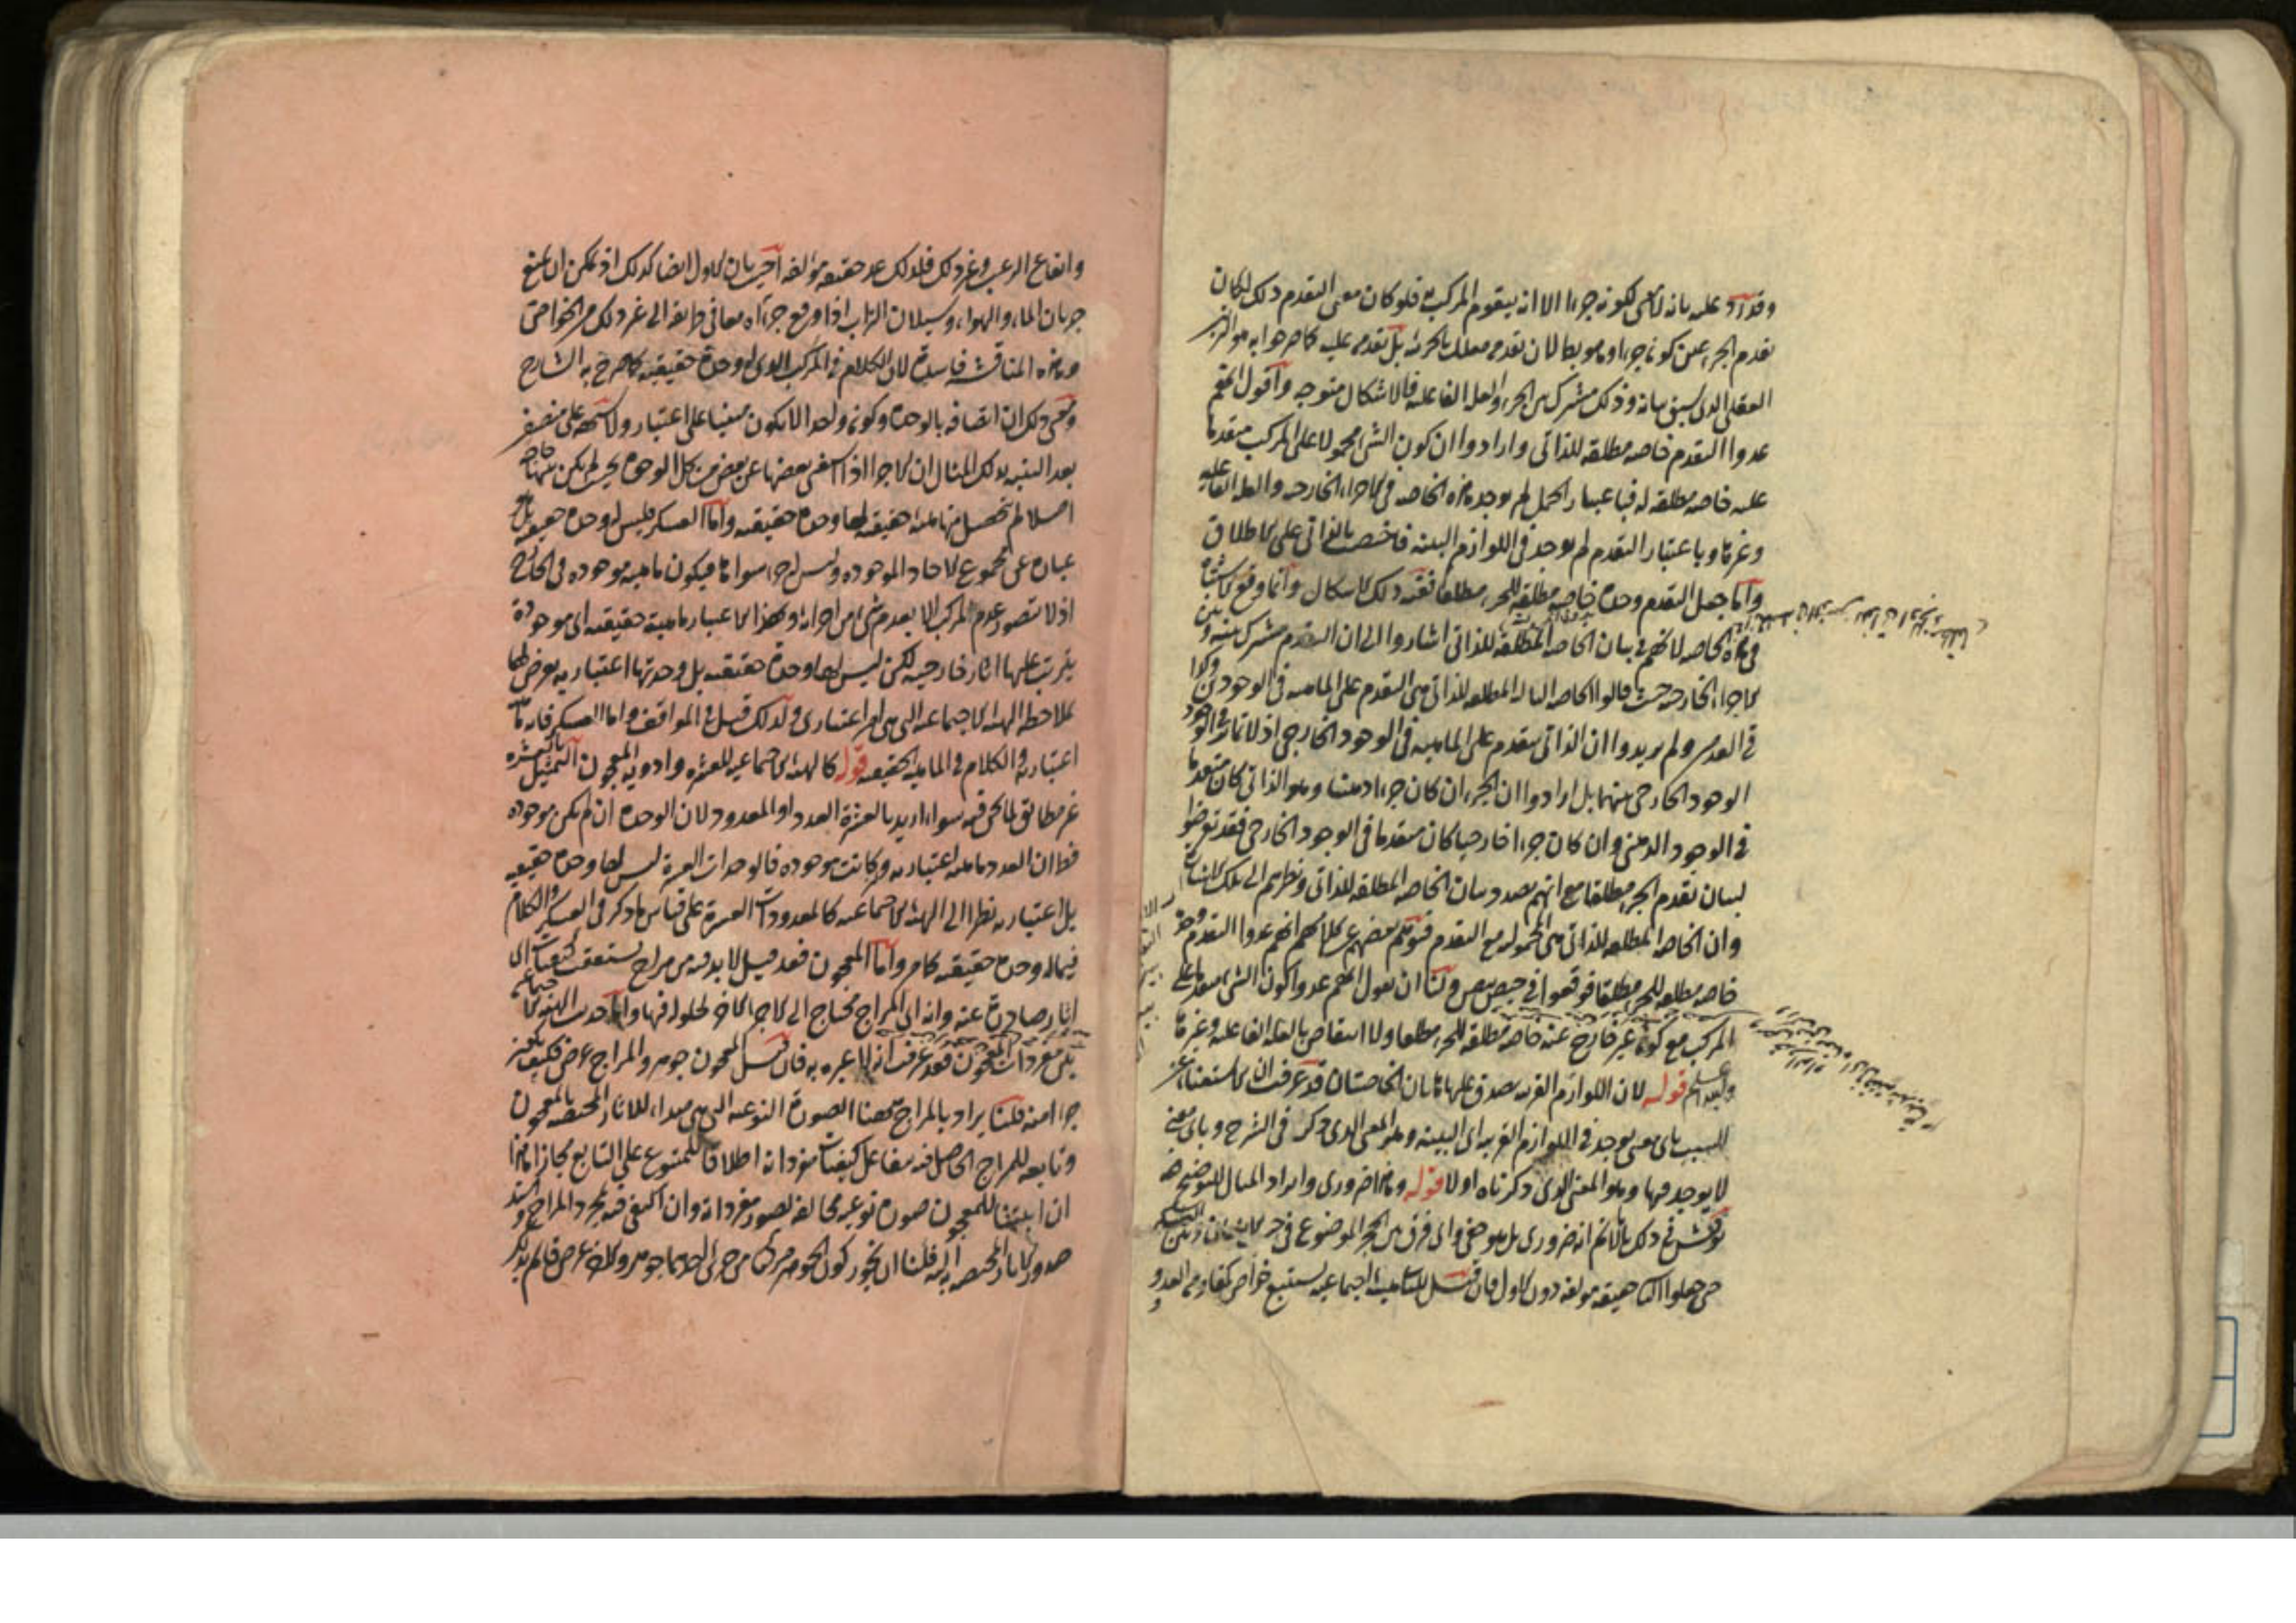 وقد أورد عليه بانه لا معنى لكونه جزءا الا انه يتقوم المركب به فلو كان معنى التقدم ذلك لكان
تقدم الجزء عين كونه جزءا وما هو بط لان تقدمه معلل بالجزئية بل تقدمه عليه كما صرحوا به هو التقدم
العقلى الذى سبق بيانه وذلك مشترك بين الجزء والعلة الفاعلية فالاشكال متوجه وأقول انهم
عدوا التقدم خاصة مطلقة للذاتى وارادوا ان كون الشئ محمولا على المركب متقدما
عليه خاصة مطلقة له فباعتبار الحمل لم يوجد هذه الخاصة فى الاجزاء الخارجية والعلة الفاعلية
وغيرها وباعتبار التقدم لم يوجد فى اللوازم البينة فاختصت بالذاتى على الاطلاق
وأما جعل التقدم وحده خاصة مطلقة للجزء مطلقا ففيه ذلك الاشكال وانما وقع الاشتباه
فى هذه الخاصة لانهم فى بيان الخاصة المطلقة للذاتى اشاروا الى ان التقدم مشترك بينه وبين
الاجزاء الخارجية حيث قالوا الخاصة الثالثة المطلقة للذاتى هى التقدم على الماهية فى الوجودين وكذا
فى العدمين ولم يريدوا ان الذاتى متقدم على الماهية فى الوجود الخارجى اذ لا تمايز فى الوجود
الوجود الخارجى بينهما بل ارادوا ان الجزء ان كان جزءا ذهنيا وهو الذاتى كان متقدما
فى الوجود الذهنى وان كان جزءا خارجيا كان متقدما فى الوجود الخارجى فقد تعرضوا
لبيان تقدم الجزء مطلقا مع انهم بصدد بيان الخاصة المطلقة للذاتى ونظرهم الى تلك المشاركة
وان الخاصة المطلقة للذاتى هى المحمولية مع التقدم فتوهم بعضهم من كلامهم انهم عدوا التقدم وحده
خاصة مطلقة للجزء مطلقا فوقعوا فى حيص بيص ولنا ان نقول انهم عدوا كون الشئ متقدما على
المركب مع كونه غير خارج عنه خاصة مطلقة للجزء مطلقا ولا انتقاض بالعلة الفاعلية وغيرها
والله اعلم قوله لان اللوازم القريبة يصدق عليها هاتان الخاصتان قد عرفت ان الاستغناء عن
السبب باى معنى يوجد فى اللوازم القريبة اى البينة وهو المعنى الذى ذكر فى الشرح وباى معنى
لا يوجد فيها وهو المعنى الذى ذكرناه اولا قوله وهذا ضرورى وايراد المثال للتوضيح
نوقش فى ذلك بانا لا نم انه ضرورى بل هو خفى واى فرق بين الحجر الموضوع فى جنب الانسان وبين العسكر
حتى جعلوا الثانى حقيقة مؤلفة دون الاول فان قيل للثانى هيئة اجتماعية يستتبع خواص كمقاومة العدو
وايقاع الرعب وغير ذلك فلذلك عد حقيقة مؤلفة أجيب بان الاول ايضا كذلك اذ يمكن ان يمنع
جريان الماء والهواء وسيلان التراب اذا وقع جزءاه معا فى طريقه الى غير ذلك من الخواص
وهذه المناقشة فاسدة لان الكلام فى المركب الذى له وحدة حقيقية كما صرح به الشارح
ومعنى ذلك ان اتصافه بالوحدة وكونه واحدا لا يكون مبنيا على اعتبار ولا شبهة على منصف
بعد التنبيه بذلك المثال ان الاجزاء اذا استغنى بعضها عن بعض من كل الوجوه بحيث لم يكن بينها حاجة
اصلا لم تحصل منها ماهية حقيقية لها وحدة حقيقية وأما العسكر فليس له وحدة حقيقية بل هو
عبارة عن مجموع الاحاد الموجودة وليس له جزء سواها فيكون ماهية موجودة فى الخارج
اذ لا يتصور عدم المركب الا بعدم شئ من اجزائه وبهذا الاعتبار ماهية حقيقية اى موجودة
يترتب عليها اثار خارجية لكن ليس لها وحدة حقيقية بل وحدتها اعتبارية يعرض لها
بملاحظة الهيئة الاجتماعية التى هى امر اعتبارى ولذلك قيل فى المواقف واما العسكر فانه ماهية
اعتبارية والكلام فى الماهية الحقيقية قوله كالهيئة الاجتماعية للعشرة وادوية المعجون التمثيل بالعشرة
غير مطابق لما نحن فيه سواء اريد بالعشرة العدد او المعدود لان الوحدة ان لم يكن موجودة
فظ ان العدد ماهية اعتبارية وان كانت موجودة فالوحدات العشرة ليس لها وحدة حقيقية
بل اعتبارية نظرا الى الهيئة الاجتماعية كالمعدودات العشرة على قياس ما ذكر فى العسكر والكلام
فيما له وحدة حقيقية كما مر وأما المعجون فقد قيل لا بد فيه من مزاج يستعقب كيفيات اى
اثار صادرة عنه وانه اى المزاج محتاج الى الاجزاء الاخر لحلوله فيها وأما حديث الهيئة الاجتماعية
بين مفردات المعجون فقد عرفت انه لا عبرة به فان قيل المعجون جوهر والمزاج عرض فكيف يكون
جزءا منه قلنا يراد بالمزاج ههنا الصورة النوعية التى هى مبداء للاثار المختصة بالمعجون
وتابعة للمزاج الحاصل فيه بتفاعل كيفيات مفرداته اطلاقا للمتبوع على التابع مجازا هذا
ان اثبتنا للمعجون صورة نوعية مخالفة لصور مفرداته وان اكتفى فيه بمجرد المزاج واسند
صدور الاثار المختصة به اليه فلنا ان نجوز كون الجوهر مركبا من جزئين احدهما جوهر والاخر عرض فانه لم يذكر